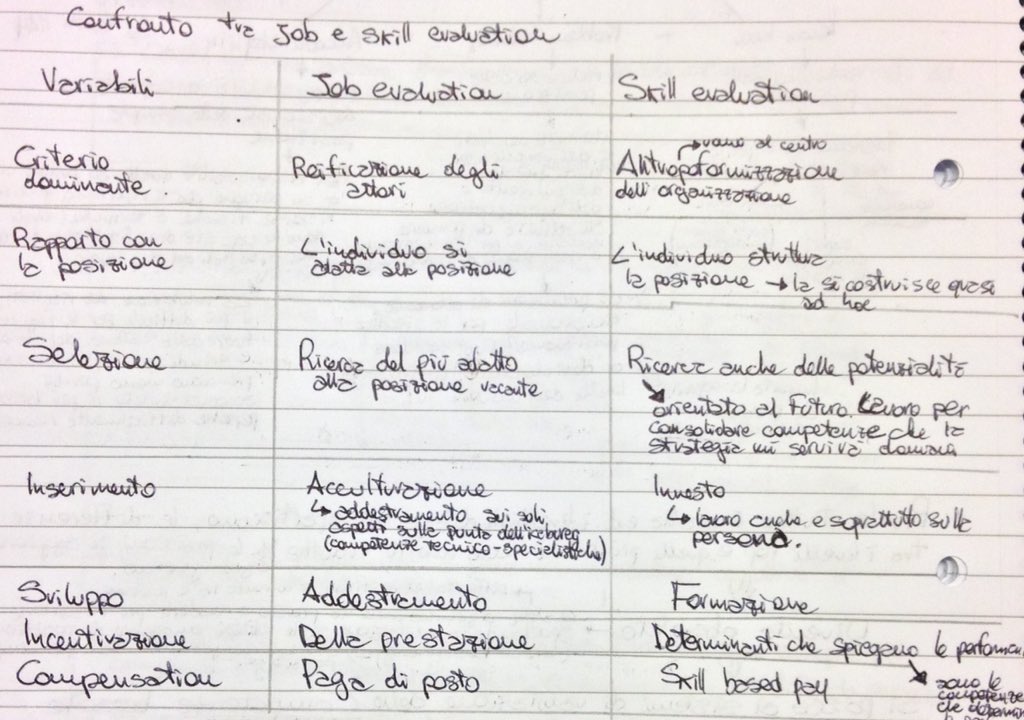 Confronto tra Job e skill evaluation
Variabili Job evaluation Skill evaluation
Criterio dominante
Reificazione degli attori
→ uomo al centro
Antropoformizzazione dell'organizzazione
Rapporto con la posizione
L'individuo si adatta alla posizione
L'individuo struttura la posizione → la si costruisce quasi ad hoc
Selezione
Ricerca del più adatto alla posizione vacante
Ricerca anche delle potenzialità
orientato al futuro. Lavoro per consolidare competenze che la strategia mi servirà domani
Inserimento
Acculturazione
↳ addestramento sui soli aspetti sulla punta dell'iceberg (competenze tecnico-specialistiche)
Innesto
↳ lavoro anche e soprattutto sulla persona.
Sviluppo Addestramento Formazione
Incentivazione Della prestazione Determinanti che spiegano le
Compensation Paga di posto Skill based pay
sono le competenze che